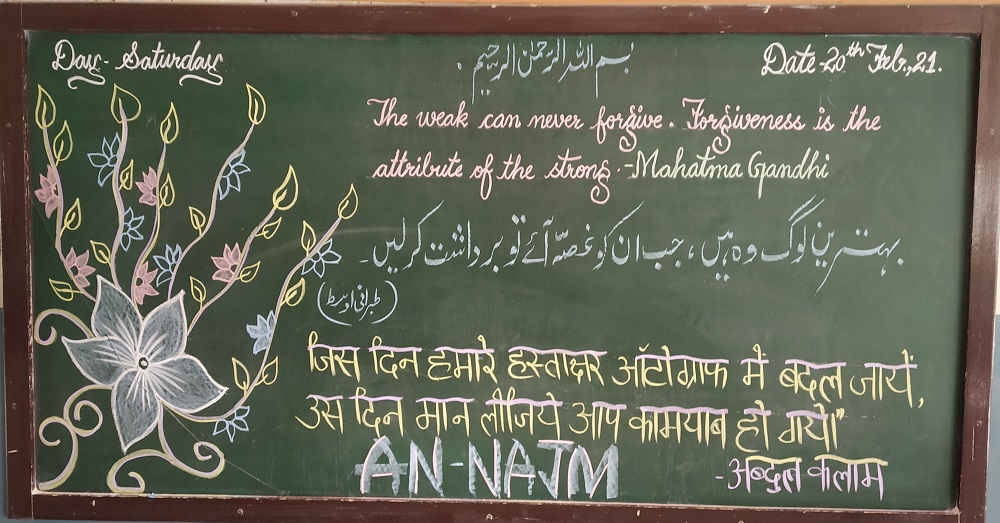 Day- Saturday
بسم اللہ الرحمٰن الرحیم۔
Date-20th Feb.,21.
The weak can never forgive. Forgiveness is the
attribute of the strong.-Mahatma Gandhi
بہترین لوگ وہ ہیں، جب ان کو غصّہ آئے تو برداشت کرلیں۔
(طبرانی اوسط)
जिस दिन हमारे हस्ताक्षर ऑटोग्राफ में बदल जायें,
उस दिन मान लीजिये आप कामयाब हो गये।"
-अब्दुल कलाम
AN-NAJM